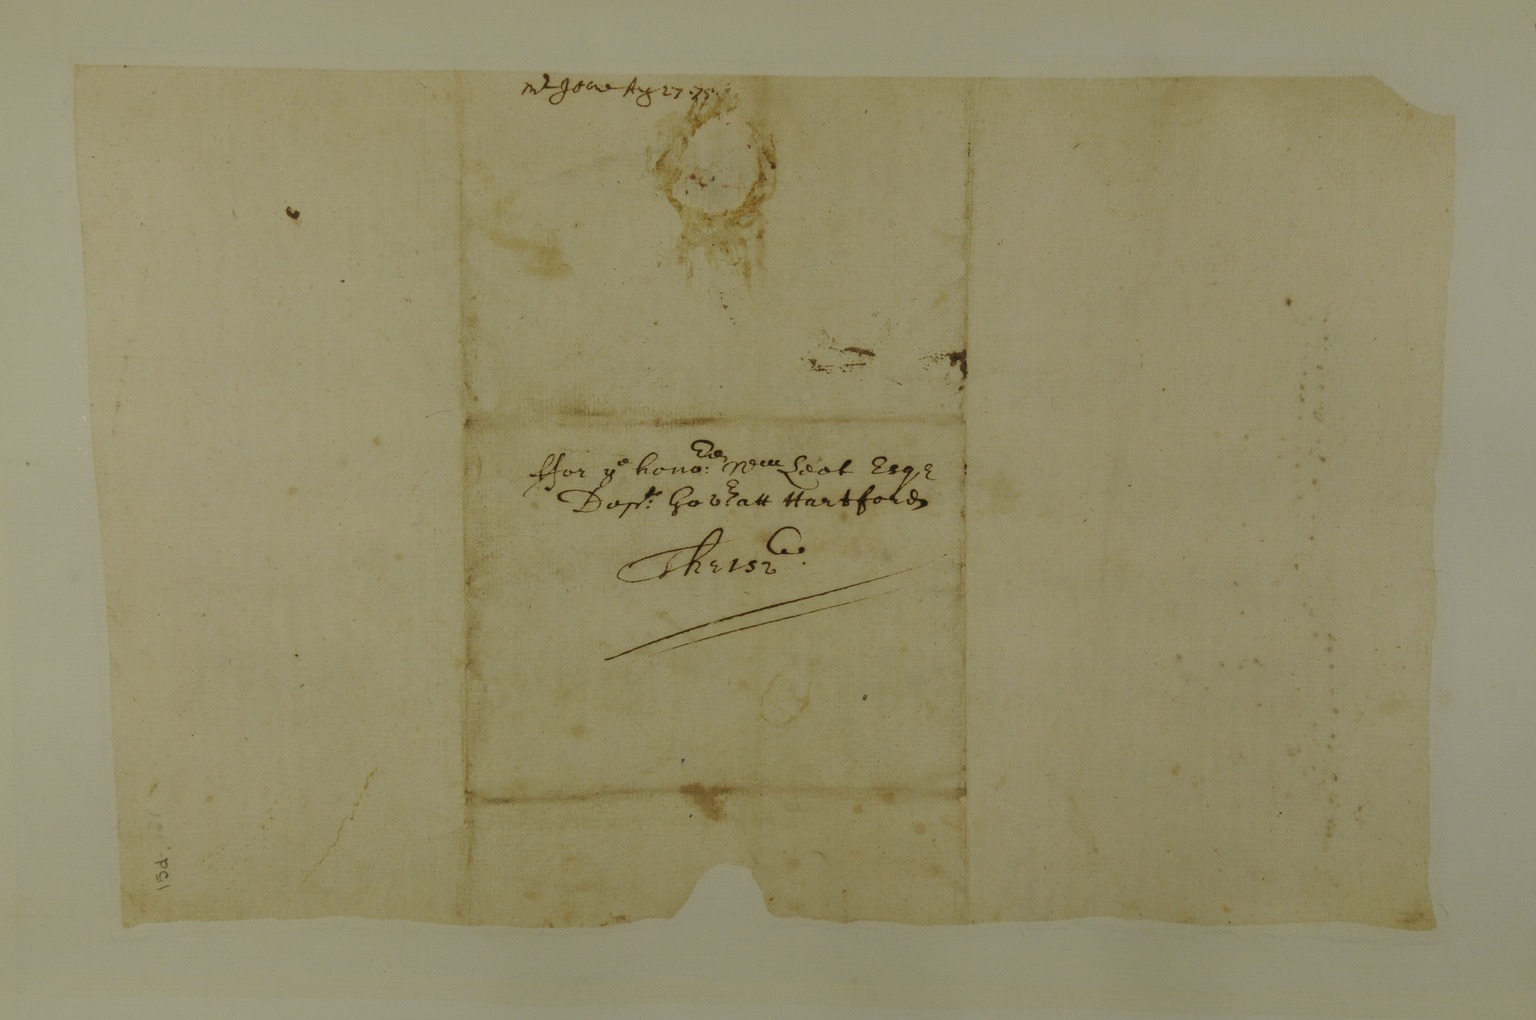 Aug 27. 75
ffor yᵉ honoʳᵈ: Wm Leet Esqr
Depᵗ: Govʳ: att Hartford
These
15d.